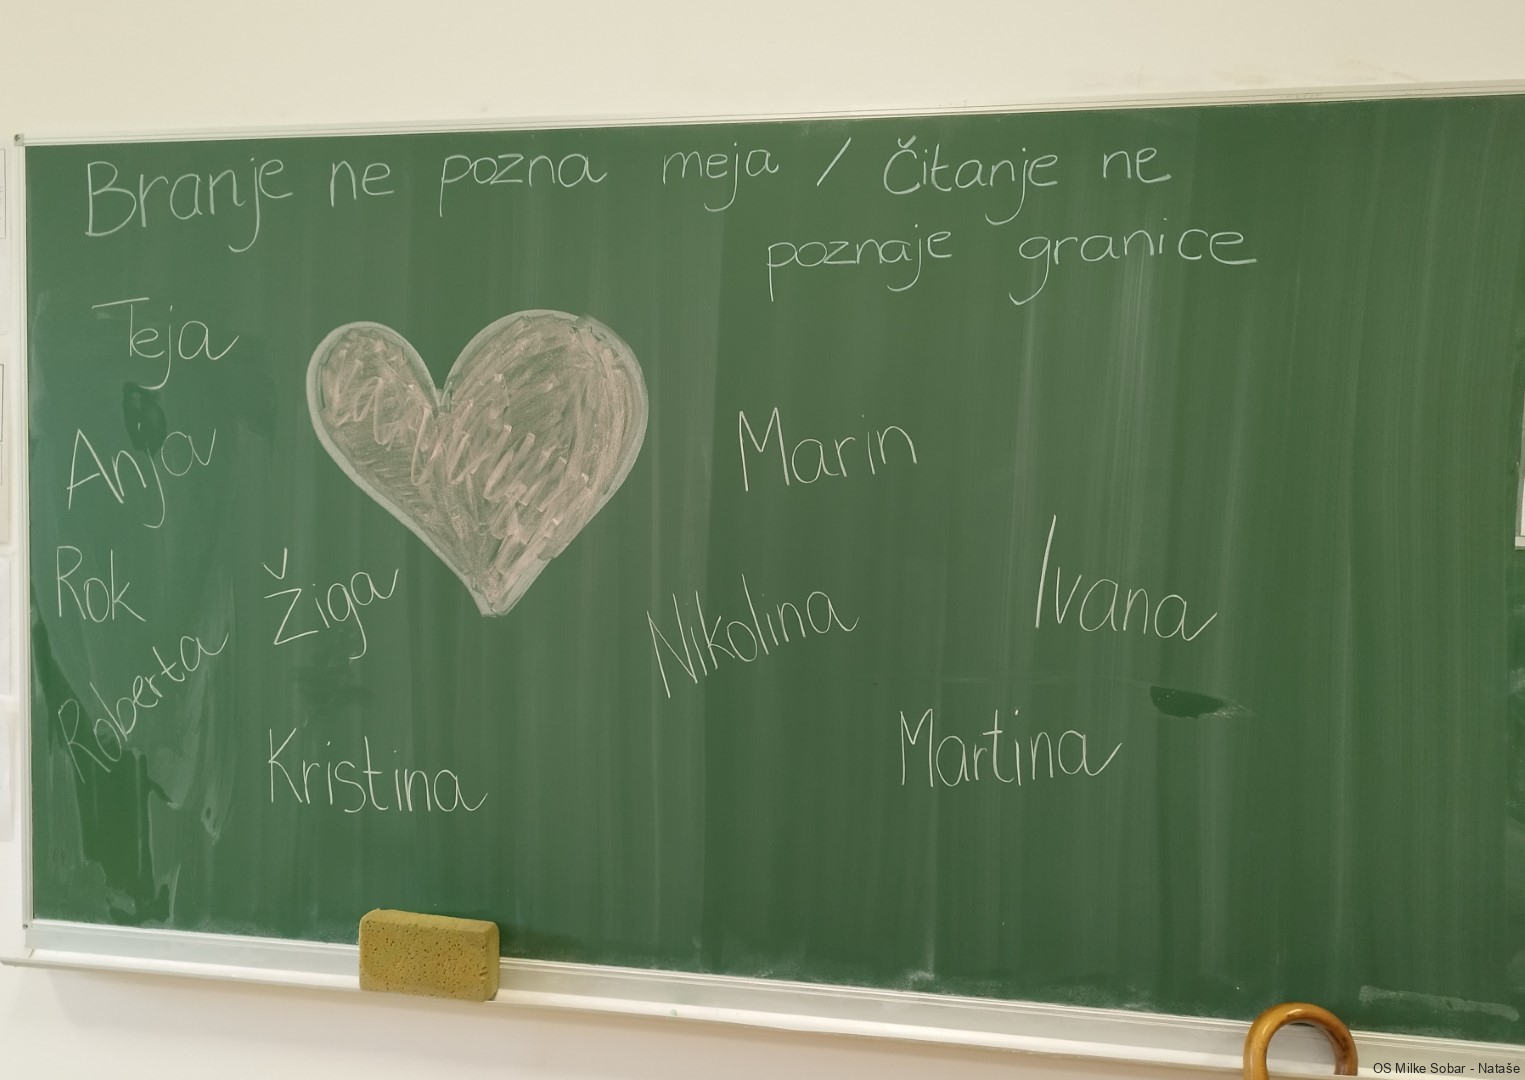 Branje ne pozna meja / Čitanje ne
poznaje granice
Teja
Anja
Marin
Rok
Žiga
Nikolina
Ivana
Roberta
Kristina
Martina
OS Milke Sobar - Nataše